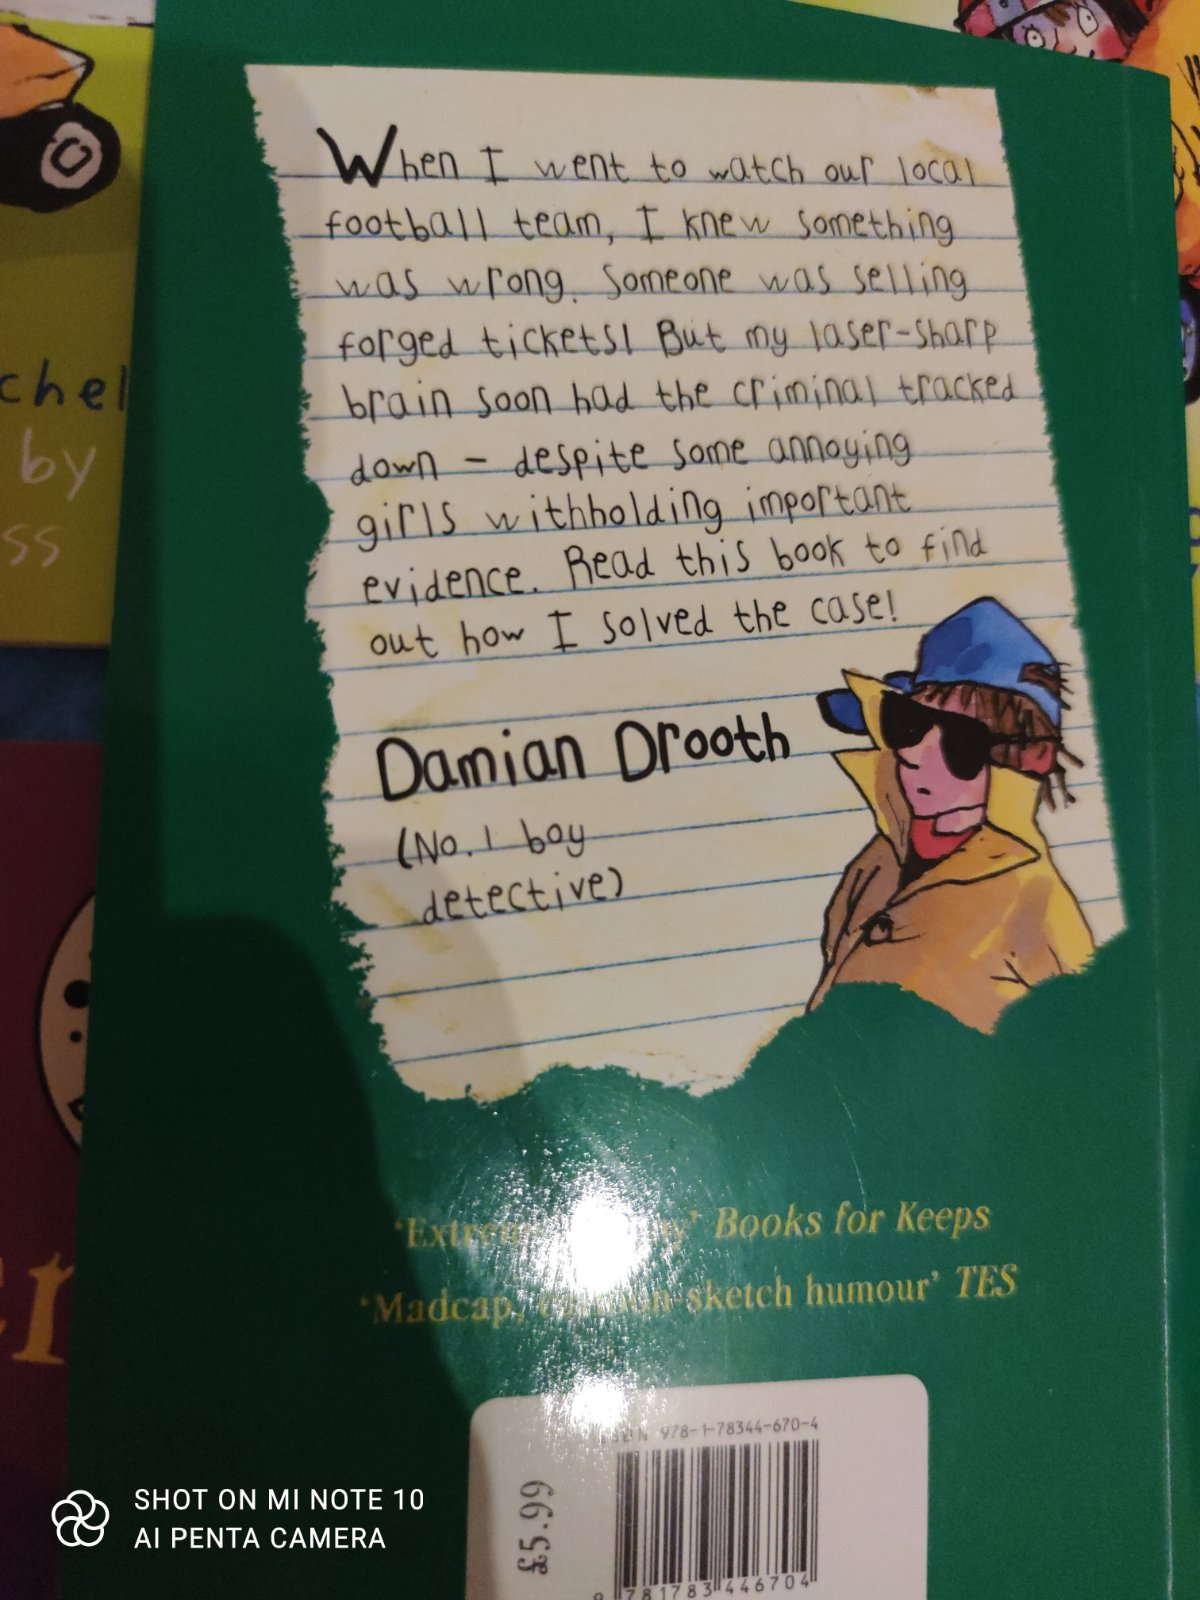 When I went to watch our local
football team, I knew something
was wrong. Someone was selling
forged tickets! But my laser-sharp
brain soon had the criminal tracked
down – despite some annoying
girls withholding important
evidence. Read this book to find
out how I solved the case!
Damian Drooth
(No. 1 boy
detective)
Books for Keeps
'Madcap, cartoon-sketch humour' TES
ISBN 978-1-78344-670-4
£5.99
9 781783 446704
chel
by
ss
er
SHOT ON MI NOTE 10
AI PENTA CAMERA